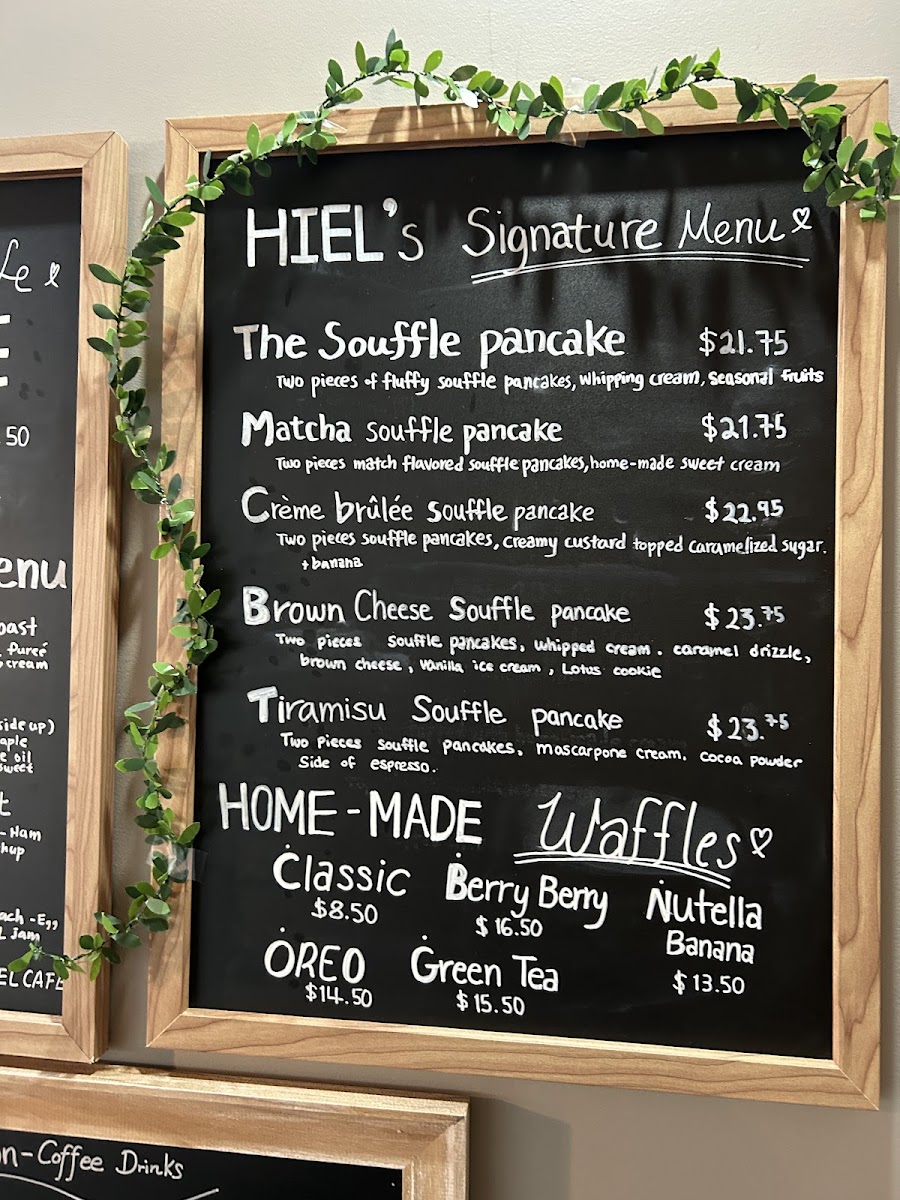 HIEL's Signature Menu
The Souffle pancake $21.75
Two pieces of fluffy souffle pancakes, whipping cream, seasonal fruits
Matcha souffle pancake $21.75
Two pieces match flavored souffle pancakes, home-made sweet cream
Crème brûlée souffle pancake $22.95
Two pieces souffle pancakes, creamy custard topped caramelized sugar.
+ banana
Brown Cheese Souffle pancake $23.75
Two pieces souffle pancakes, whipped cream. caramel drizzle,
brown cheese, vanilla ice cream, Lotus cookie
Tiramisu Souffle pancake $23.75
Two pieces souffle pancakes, mascarpone cream, cocoa powder
Side of espresso.
HOME-MADE Waffles
Classic
$8.50
Berry Berry
$16.50
Nutella
Banana
$13.50
OREO
$14.50
Green Tea
$15.50
.50
enu
oast
pureé
cream
side up)
aple
e oil
sweet
t
- Ham
hup
ach - Egg
L Jam
EL CAFE
n-Coffee Drinks